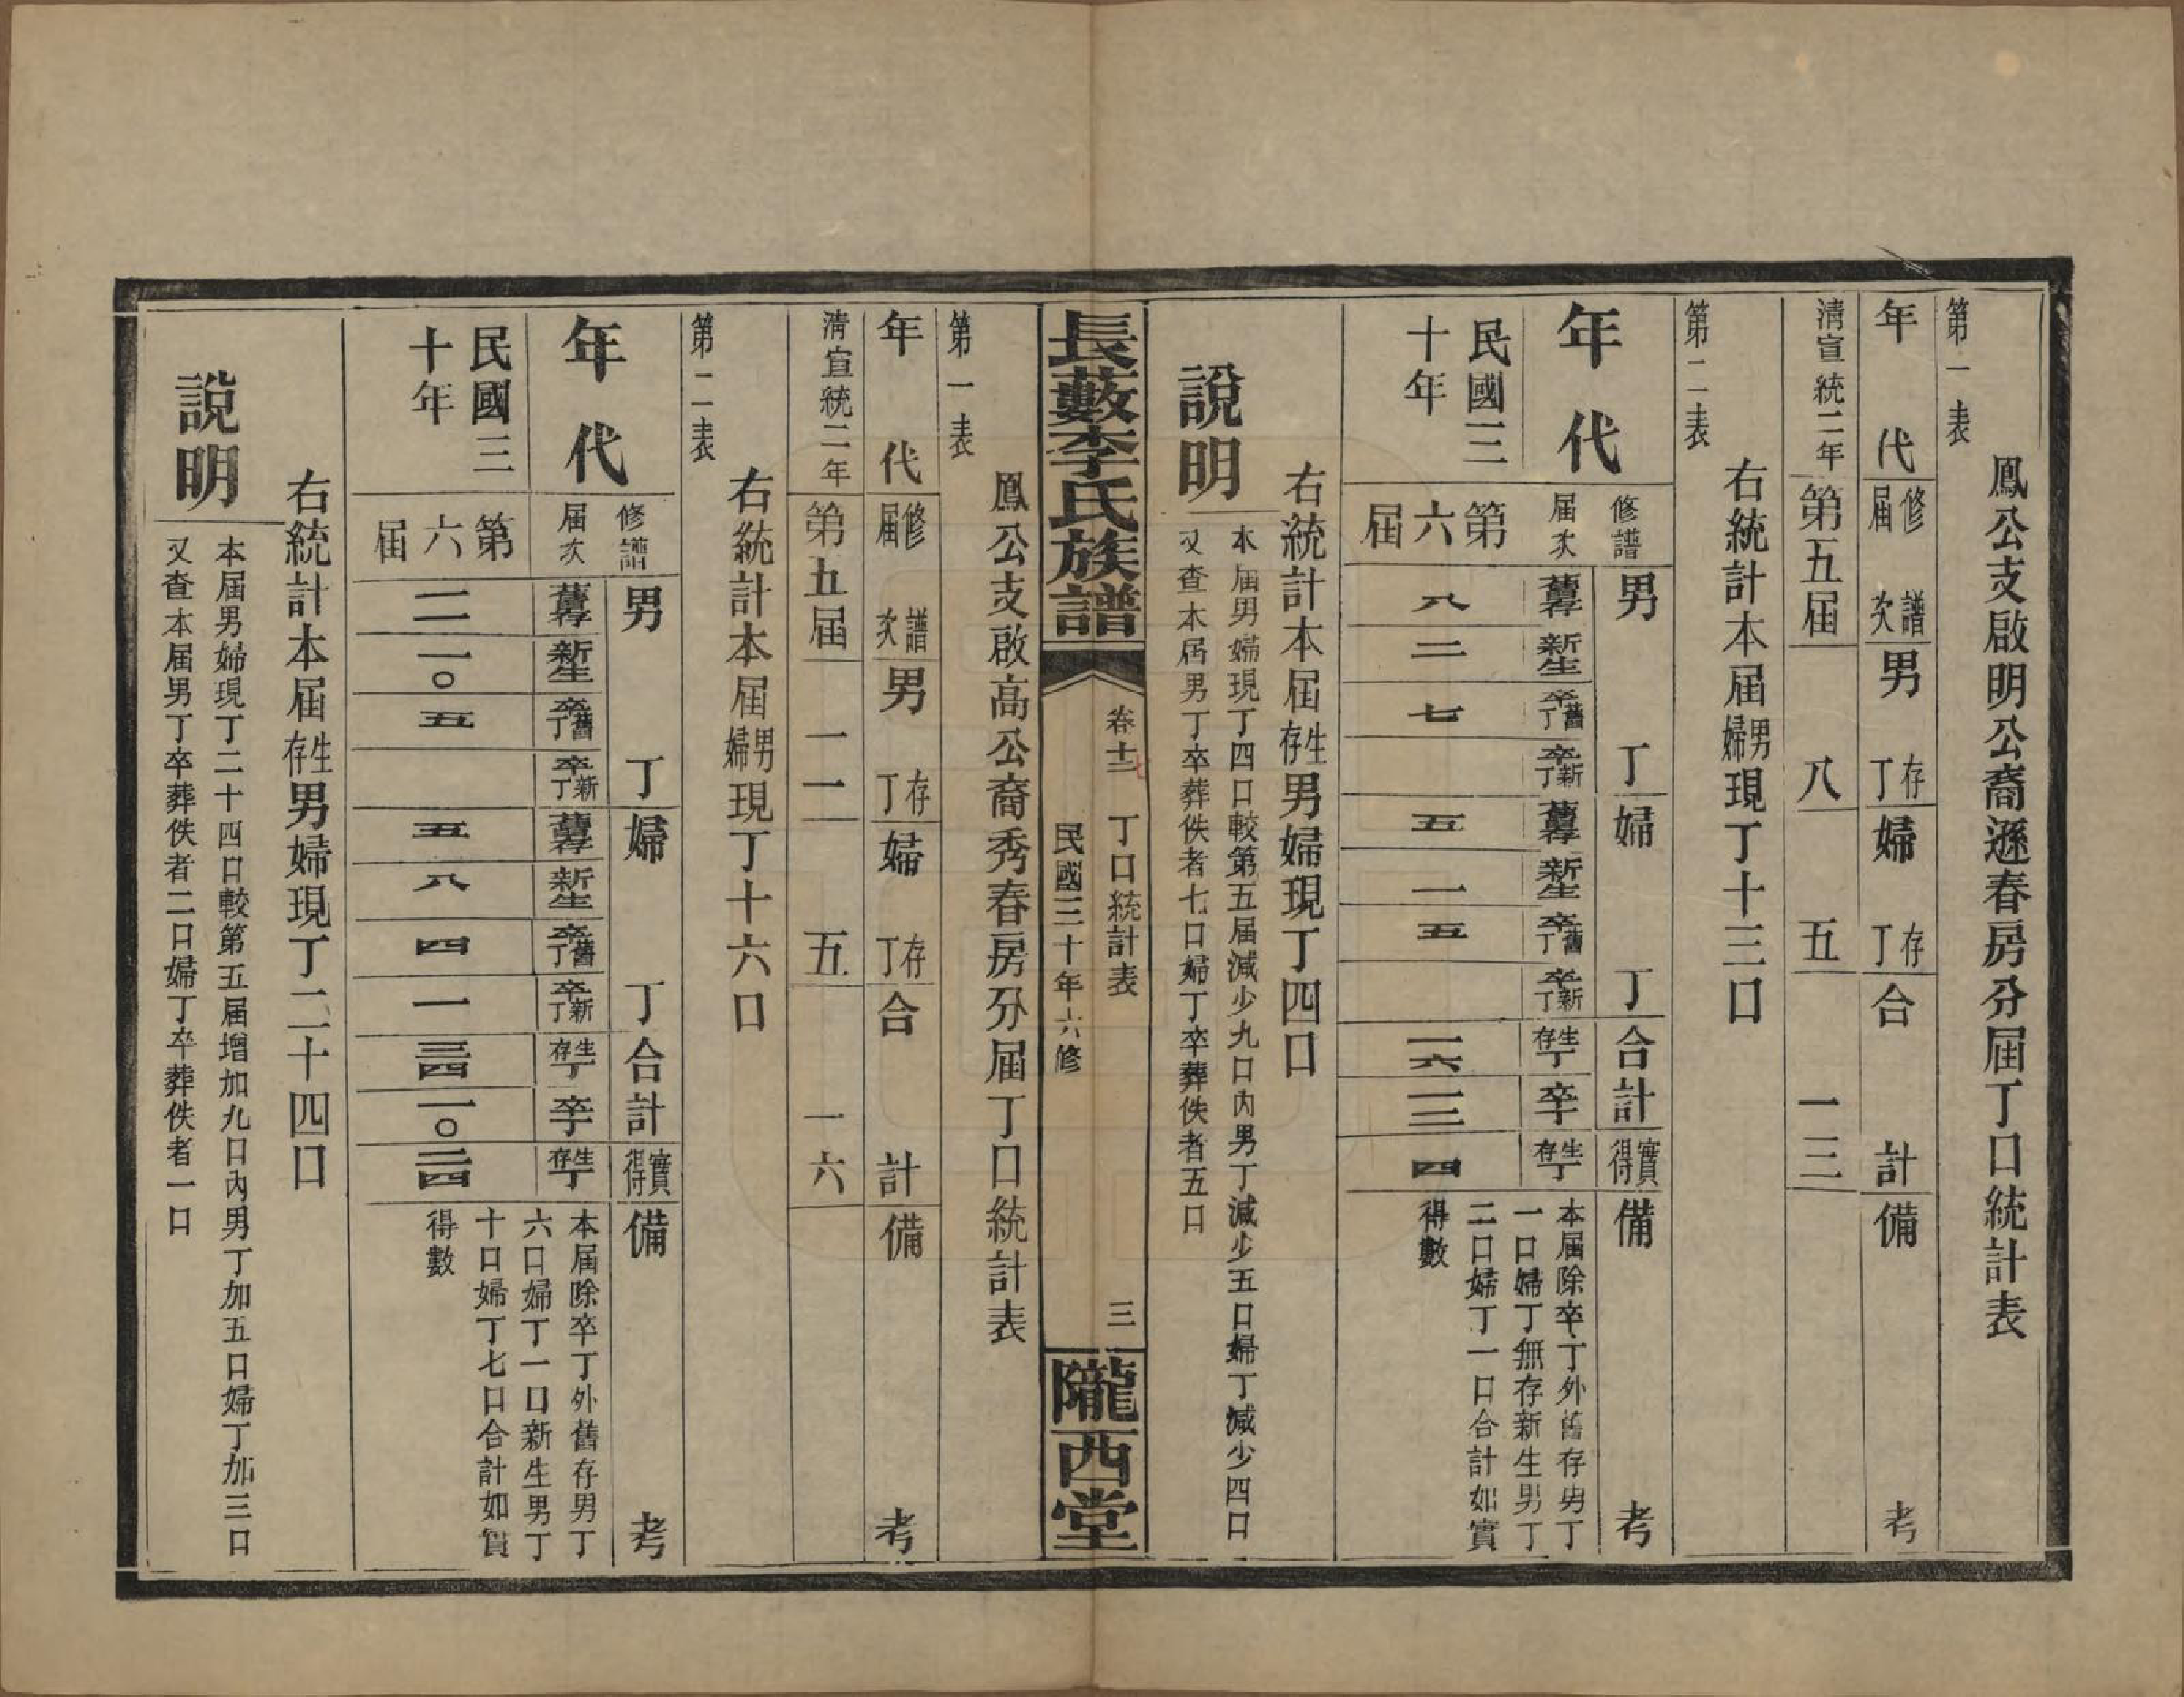 鳳公支啟明公裔遜春房分屆丁口統計表
第一表
年代 修譜屆次 男存丁 婦存丁 合計 備考
清宣統二年 第五屆 八 五 一三
右統計本屆男婦現丁十三口
第二表
年代 修譜屆次 男丁 婦丁 合計 實得 備考
舊存 新生 舊丁卒 新丁卒 舊存 新生 舊丁卒 新丁卒 生存丁 卒丁 生存丁
民國三十年 第六屆 八 二 七 五 一 五 一六 一二 四
本屆除卒丁外舊存男丁
一口婦丁無存新生男丁
二口婦丁一口合計如實
得數
右統計本屆生存男婦現丁四口
說明
本屆男婦現丁四口較第五屆減少九口內男丁減少五口婦丁減少四口
又查本屆男丁卒葬佚者七口婦丁卒葬佚者五口
長藪李氏族譜
卷十二 丁口統計表
民國三十年六修
三
隴西堂
鳳公支啟高公裔秀春房分屆丁口統計表
第一表
年代 修譜屆次 男存丁 婦存丁 合計 備考
清宣統二年 第五屆 一一 五 一六
右統計本屆男婦現丁十六口
第二表
年代 修譜屆次 男丁 婦丁 合計 實得 備考
舊存 新生 舊丁卒 新丁卒 舊存 新生 舊丁卒 新丁卒 生存丁 卒丁 生存丁
民國三十年 第六屆 一一 一〇 五 五 八 四 一 三四 一〇 二四
本屆除卒丁外舊存男丁
六口婦丁一口新生男丁
十口婦丁七口合計如實
得數
右統計本屆生存男婦現丁二十四口
說明
本屆男婦現丁二十四口較第五屆增加九口內男丁加五口婦丁加三口
又查本屆男丁卒葬佚者二口婦丁卒葬佚者一口